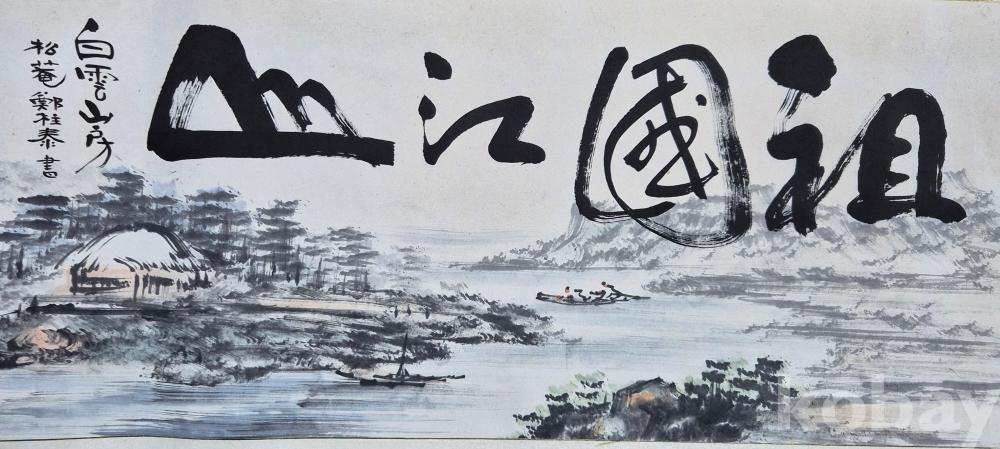 祖國江山
白雲山房
松菴鄭桂泰書
kobay